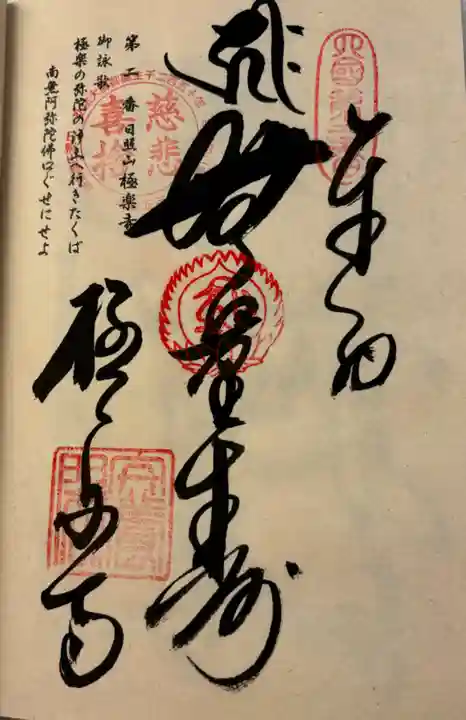 奉納
無量寿
極楽寺
第二番日照山極楽寺
御詠歌
極楽の弥陀の浄土へ行きたくば
南無阿弥陀佛口ぐせにせよ
慈悲
喜捨